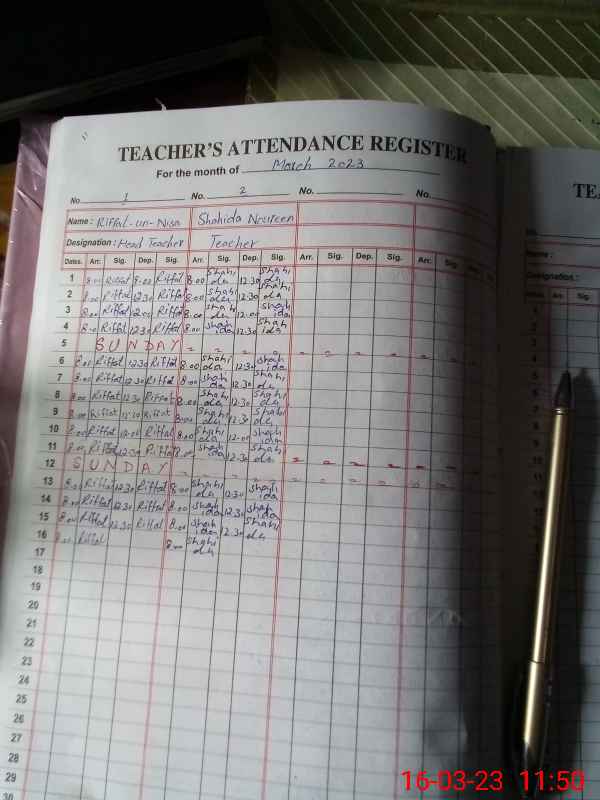 TEACHER'S ATTENDANCE REGISTER
For the month of March 2023
No. 1 No. 2 No. No.
Name : Riffat-un-Nisa Shahida Nesreen
Designation : Head Teacher Teacher
Dates. Arr. Sig. Dep. Sig. Arr. Sig. Dep. Sig. Arr. Sig. Dep. Sig. Arr. Sig.
1 8.00 Riffat 8.00 Riffat 8.00 Shahida 12.30 Shahida
2 8.00 Riffat 12.30 Riffat 8.00 Shahida 12.30 Shahida
3 8.00 Riffat 12.00 Riffat 8.00 Shahida 12.00 Shahida
4 8.00 Riffat 12.30 Riffat 8.00 Shahida 12.30 Shahida
5 SUNDAY
6 8.00 Riffat 12.30 Riffat 8.00 Shahida 12.30 Shahida
7 8.00 Riffat 12.30 Riffat 8.00 Shahida 12.30 Shahida
8 8.00 Riffat 12.30 Riffat 8.00 Shahida 12.30 Shahida
9 8.00 Riffat 12.30 Riffat 8.00 Shahida 12.30 Shahida
10 8.00 Riffat 12.00 Riffat 8.00 Shahida 12.00 Shahida
11 8.00 Riffat 12.30 Riffat 8.00 Shahida 12.30 Shahida
12 SUNDAY
13 8.00 Riffat 12.30 Riffat 8.00 Shahida 12.30 Shahida
14 8.00 Riffat 12.30 Riffat 8.00 Shahida 12.30 Shahida
15 8.00 Riffat 12.30 Riffat 8.00 Shahida 12.30 Shahida
16 8.00 Riffat 8.00 Shahida
17
18
19
20
21
22
23
24
25
26
27
28
29
30
TE
Name :
Designation :
Arr. Sig.
1
2
3
4
16-03-23 11:50